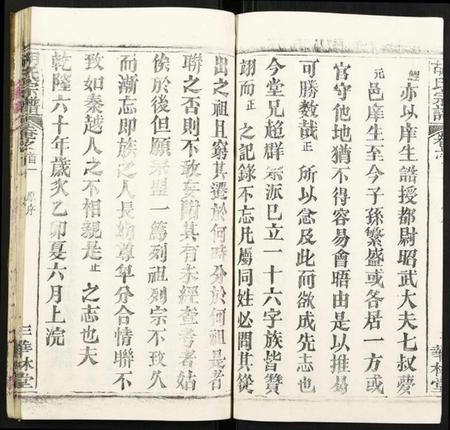 胡氏宗譜
卷之
鯉亦以庠生誥授都尉昭武大夫七叔夢
元邑庠生至今子孫繁盛或各居一方或
官守他地猶不得容易會晤由是以推曷
可勝數哉正所以念及此而欲成先志也
今堂兄超群宗派已立一十六字族皆贊
翊而正之記錄不忘凡屬同姓必問其從
華林堂
出之祖且窮其遷於何時分於何祖是者
聯之否則不敢妄附其有未經查考者姑
俟於後但願宗盟一篤列祖列宗不致久
而漸忘即族之人長幼尊卑分合情聯不
致如秦越人之不相親是正之志也夫
乾隆六十年歲次乙卯夏六月上浣
胡氏宗譜
卷之首一
原序
三
華林堂